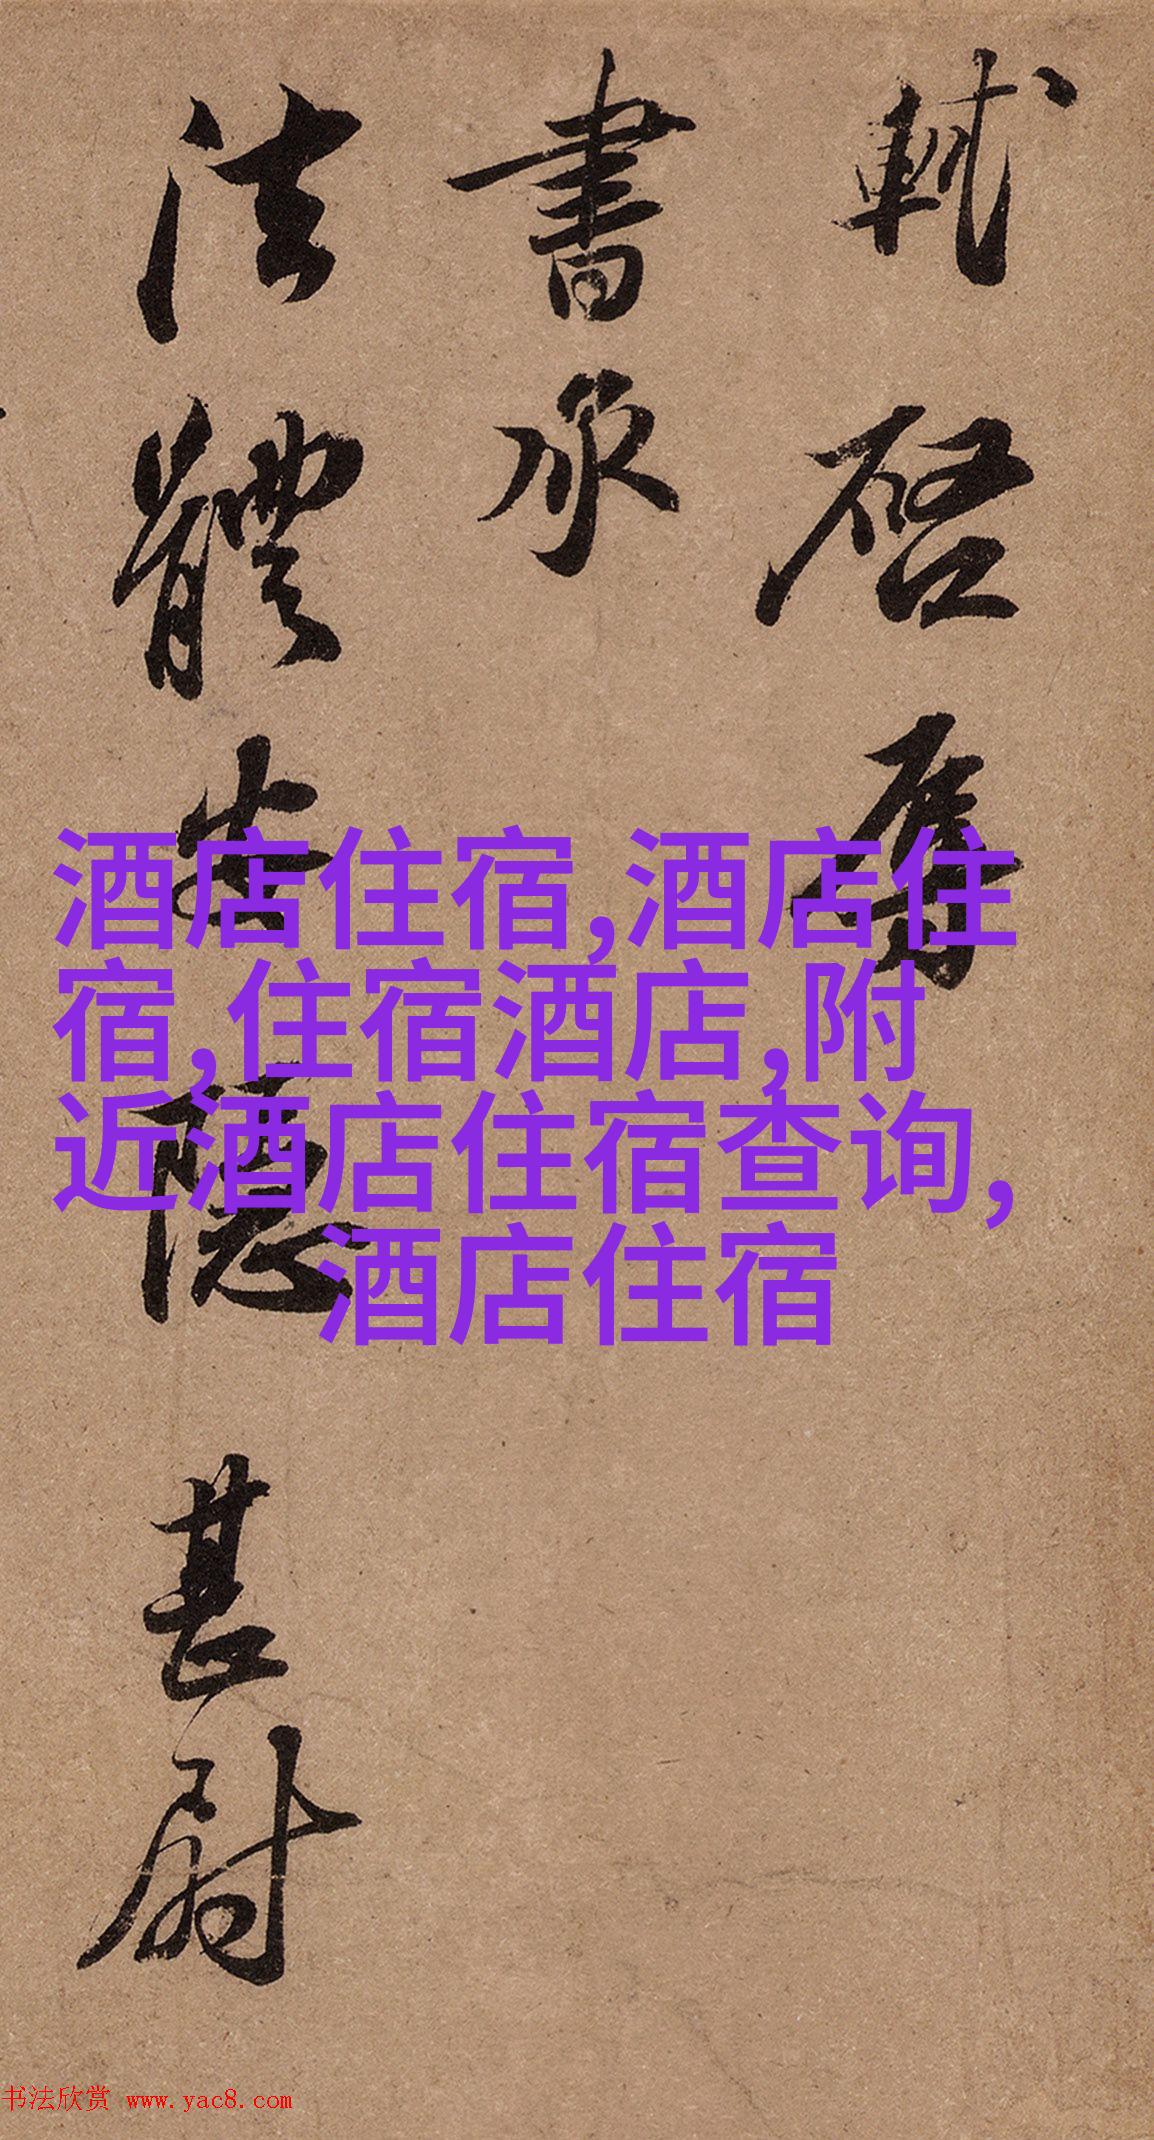 軾啓辱
書承
法體安隱甚慰
酒店住宿,酒店住
宿,住宿酒店,附
近酒店住宿查询,
酒店住宿
书法欣赏 www.yac8.com